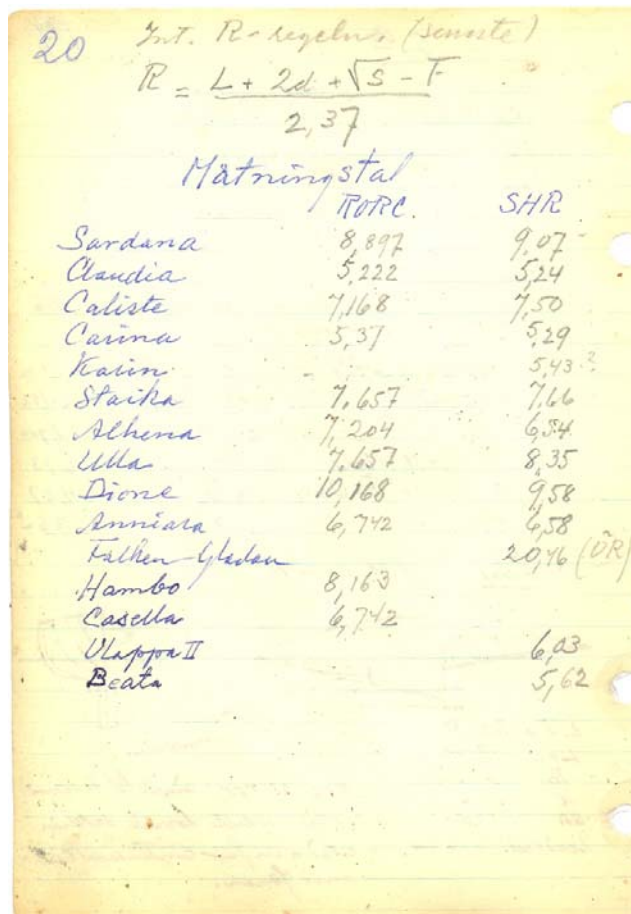 20 Int. R-regeln (senaste)
R = L + 2d + √S - F
2,37
Mätningstal
RORC. SHR
Sardana 8,897 9,07
Claudia 5,222 5,24
Caliste 7,168 7,50
Carina 5,37 5,29
Karin 5,43 ?
Staika 7,657 7,66
Athena 7,204 6,54
Ulla 7,657 8,35
Dione 10,168 9,58
Anniara 6,742 6,58
Falken-Gladan 20,46 (ÖR)
Hambo 8,163
Casella 6,742
II 6,03
Beata 5,62